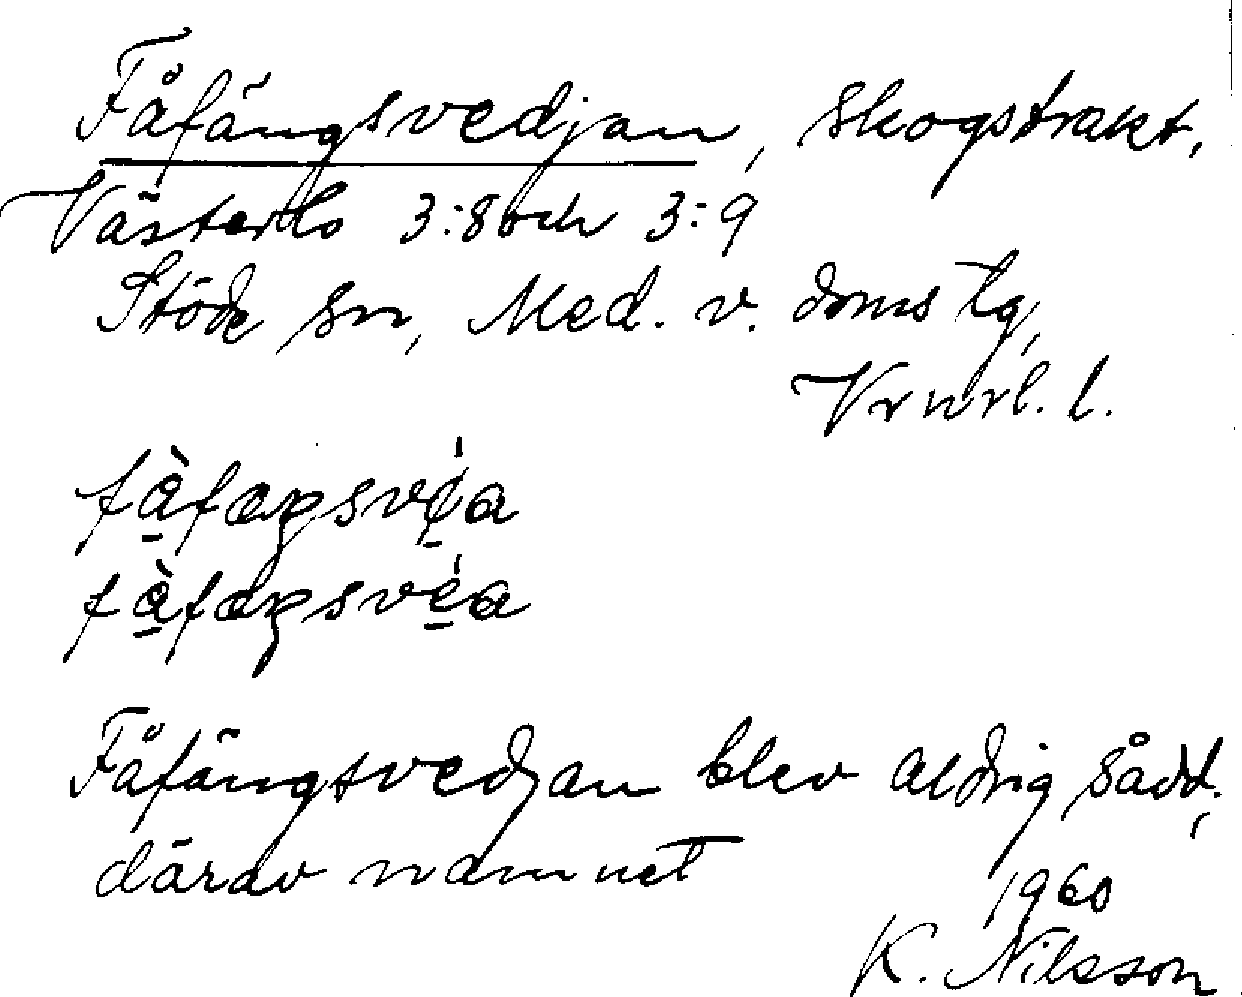 Fåfängsvedjan, skogstrakt,
Västerlo 3:8 och 3:9
Stöde sn, Med. v. doms lg,
Vrnrl. l.
fàfæŋsve̱a
fàfæŋsve̱a
Fåfängsvedjan blev aldrig sådd;
därav namnet
1960
K. Nilsson